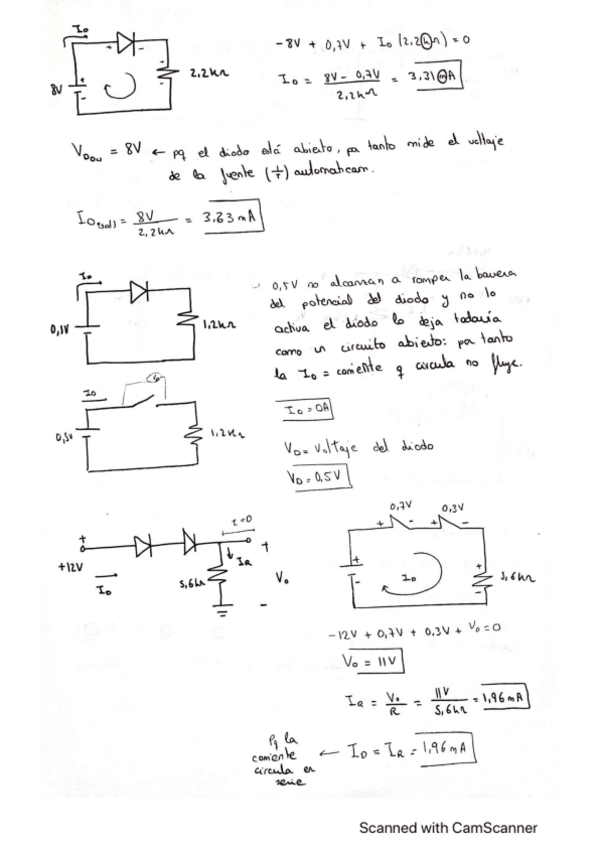 I_D
8V
+ -
2,2kΩ
-8V + 0,7V + I_D (2,2kΩ) = 0
I_D = (8V - 0,7V) / 2,2kΩ = 3,31mA
= 8V ← pq el diodo está abierto, por tanto mide el voltaje
de la fuente (+/-) automaticam.
= 8V / 2,2kΩ = 3.63 mA
I_D
1,2kΩ
0,5V no alcanzan a romper la barrera
del potencial del diodo y no lo
activa el diodo lo deja todavía
como un circuito abierto: por tanto
la I_D = corriente q circula no fluye.
I_D
0,5V
1,2kΩ
I_D = 0A
V_D = Voltaje del diodo
V_D = 0,5V
+12V
I_D
I_R
5,6kΩ
+
V_o
-
0,7V
0,3V
I_D
5,6kΩ
-12V + 0,7V + 0,3V + V_o = 0
V_o = 11V
I_R = V_o / R = 11V / 5,6kΩ = 1,96mA
Pq la
corriente
circula en
serie
← I_D = I_R = 1,96mA
Scanned with CamScanner